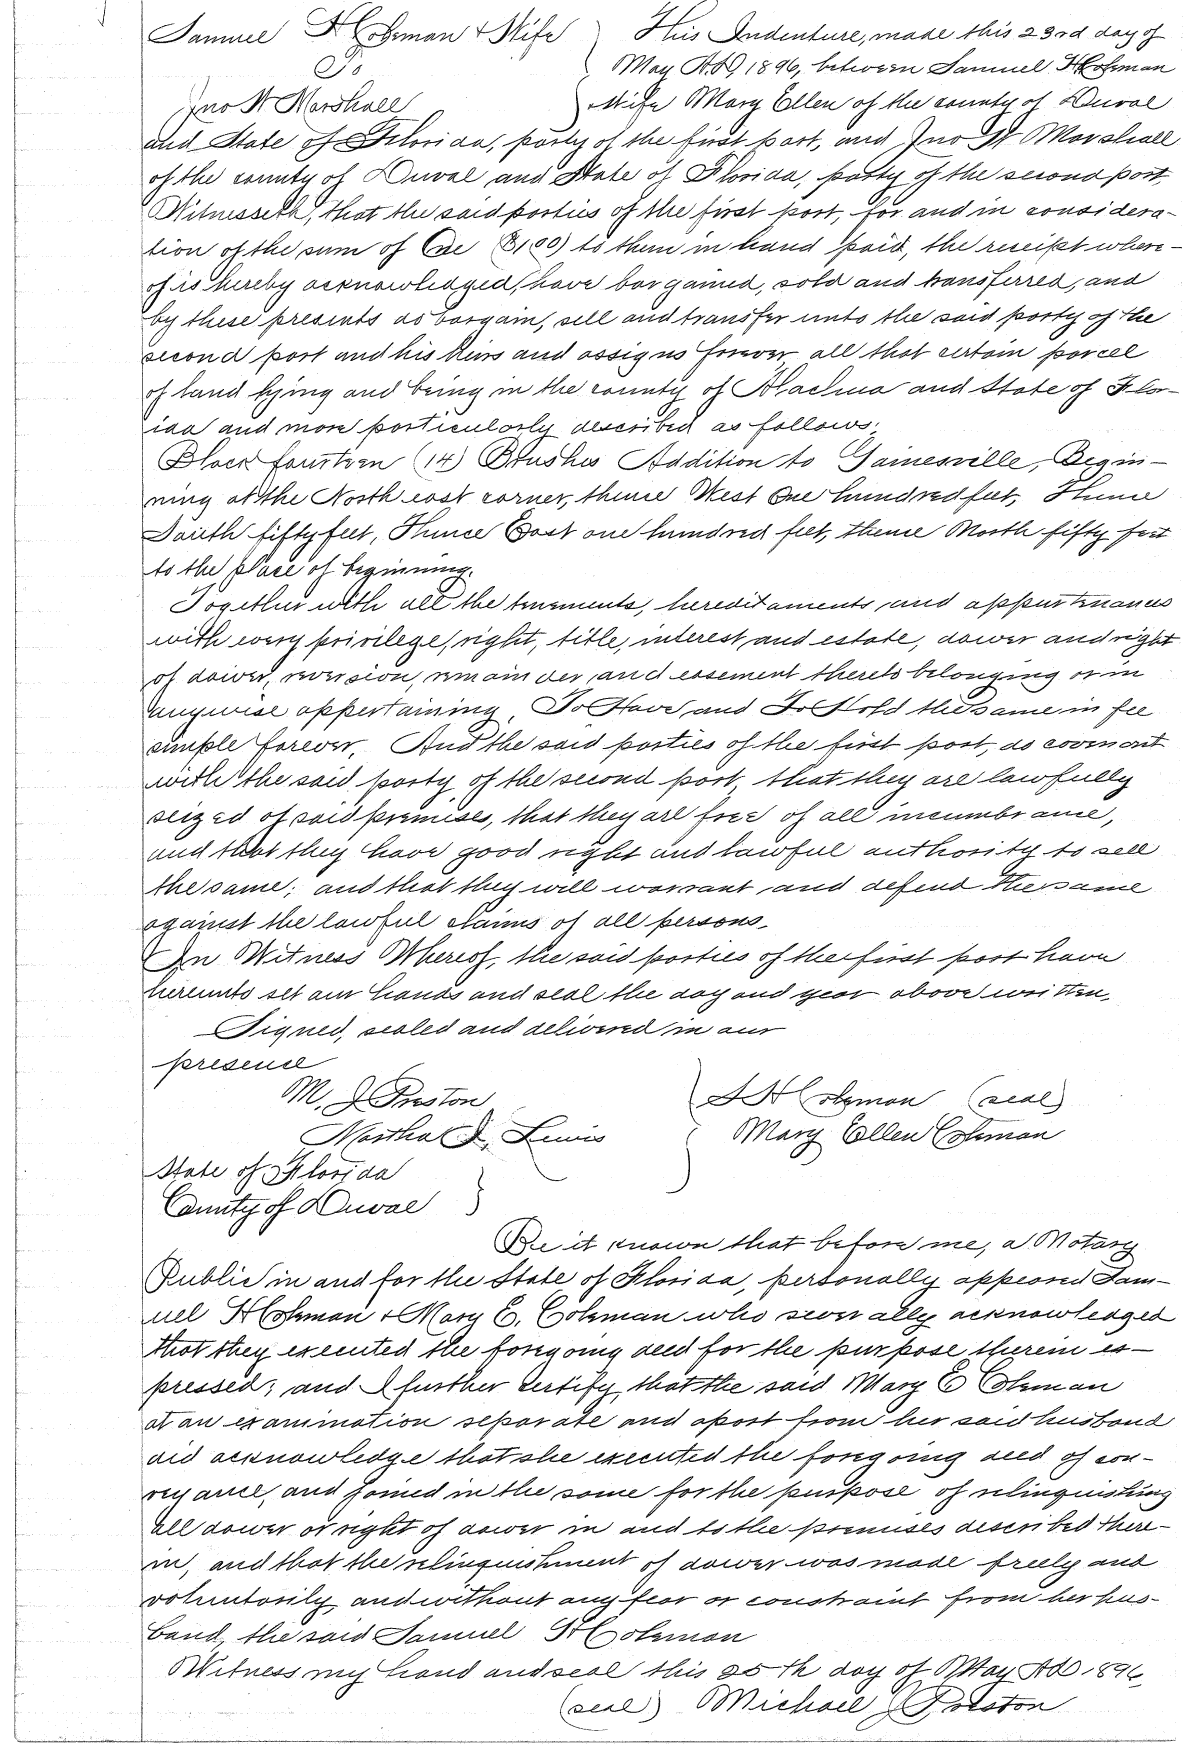 Samuel H Coleman & Wife
To
Jno W Marshall
This Indenture, made this 23rd day of
May A.D. 1896, between Samuel H Coleman
& Wife Mary Ellen of the county of Duval
and State of Florida, party of the first part, and Jno W Marshall
of the county of Duval and State of Florida, party of the second part,
Witnesseth, that the said parties of the first part, for and in considera-
tion of the sum of One ($100) to them in hand paid, the receipt where-
of is hereby acknowledged, have bargained, sold and transferred, and
by these presents do bargain, sell and transfer unto the said party of the
second part and his heirs and assigns forever all that certain parcel
of land lying and being in the county of Alachua and State of Flor-
ida and more particularly described as follows:
Block fourteen (14) Brushes Addition to Gainesville, Begin-
ning at the North east corner, thence West One hundred feet, Thence
South fifty feet, Thence East one hundred feet, thence North fifty feet
to the place of beginning.
Together with all the tenements, hereditaments and appurtenances
with every privilege, right, title, interest, and estate, dower and right
of dower, reversion, remainder, and easement thereto belonging or in
anywise appertaining, To Have and To Hold the same in fee
simple forever. And the said parties of the first part, do covenant
with the said party of the second part, that they are lawfully
seized of said premises, that they are free of all incumbrance,
and that they have good right and lawful authority to sell
the same; and that they will warrant and defend the same
against the lawful claims of all persons.
In Witness Whereof, the said parties of the first part have
hereunto set our hands and seal the day and year above written.
Signed, sealed and delivered in our
presence
M. J Preston
Martha J. Lewis
S H Coleman (seal)
Mary Ellen Coleman
State of Florida
County of Duval
Be it known that before me, a Notary
Public in and for the State of Florida, personally appeared Sam-
uel H Coleman & Mary E. Coleman who severally acknowledged
that they executed the foregoing deed for the purpose therein ex-
pressed; and I further certify, that the said Mary E Coleman
at an examination separate and apart from her said husband
did acknowledge that she executed the foregoing deed of con-
veyance, and joined in the same for the purpose of relinquishing
all dower or right of dower in and to the premises described there-
in, and that the relinquishment of dower was made freely and
voluntarily and without any fear or constraint from her hus-
band, the said Samuel H Coleman
Witness my hand and seal this 25th day of May A.D. 1896,
(seal) Michael J Preston